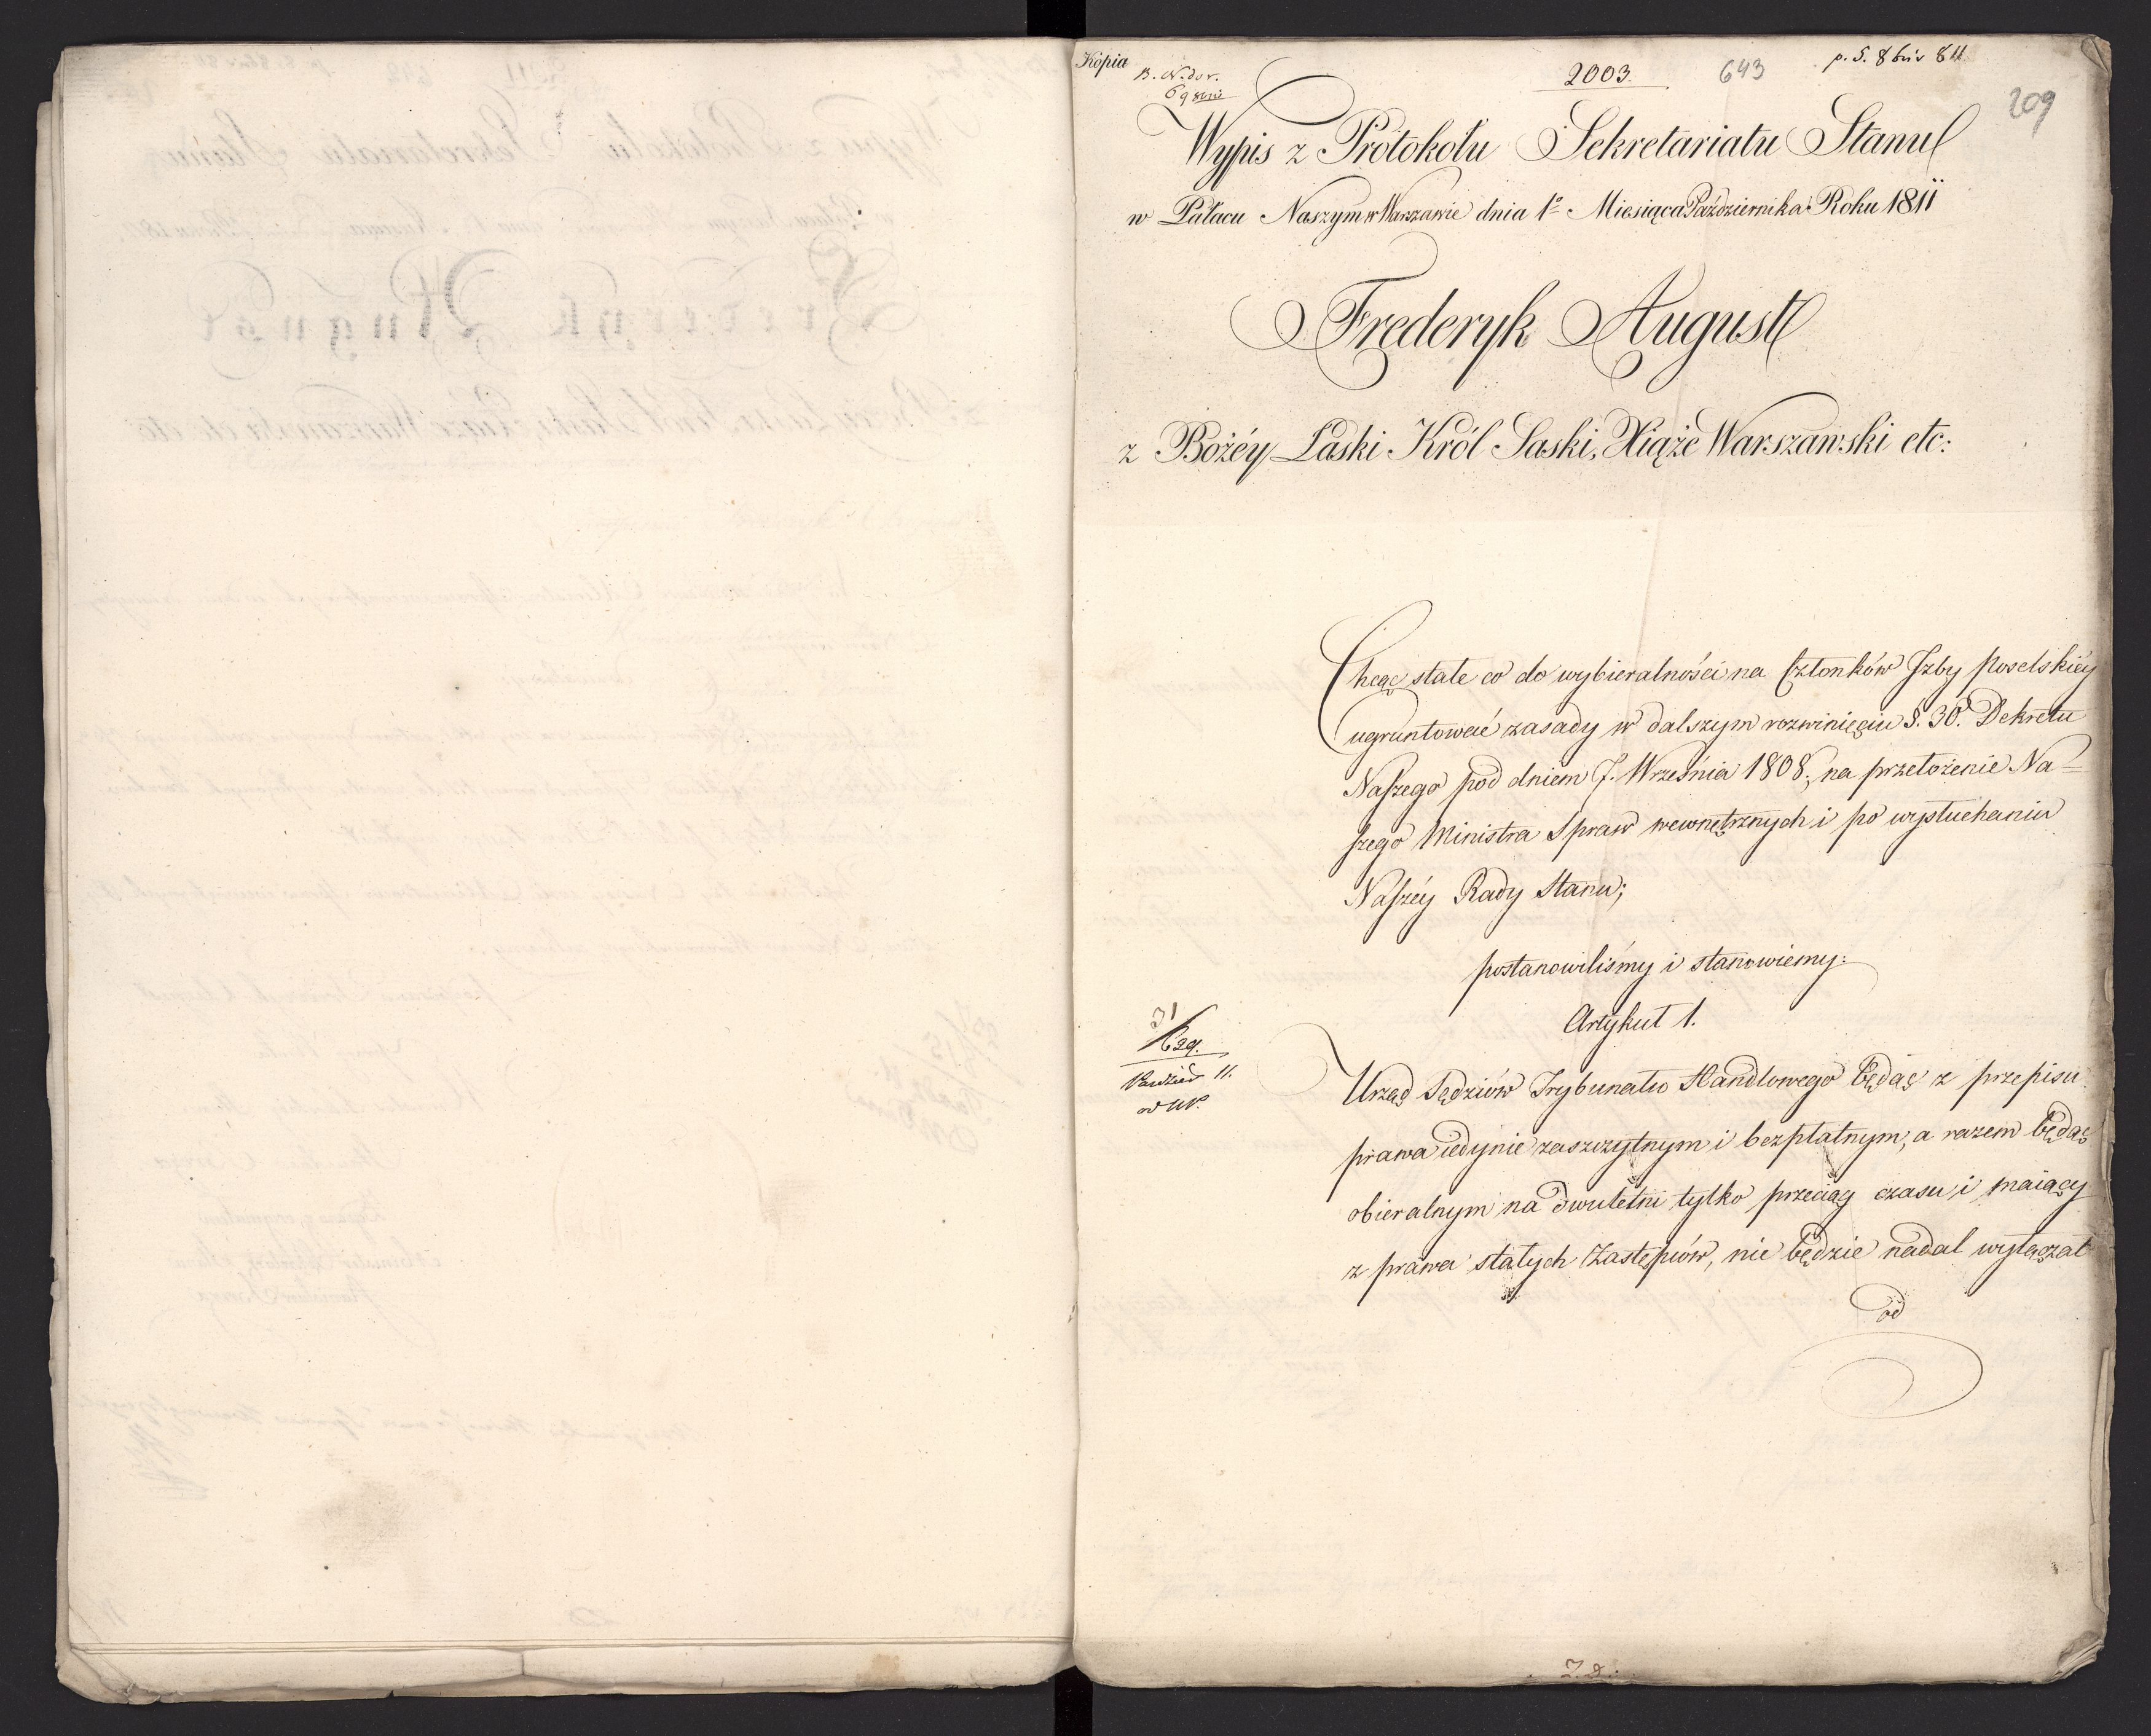 Kopia
2003.
643
209
Wypis z Protokołu Sekretariatu Stanu
w Pałacu Naszym w Warszawie dnia 1º Miesiąca Października Roku 1811
Frederyk August
z Bożéy Łaski Król Saski, Xiąże Warszawski etc:
Chcąc stałe co do wybieralności na Członków Jzby Poselskiéy
ugruntować zasady w dalszym rozwinięciu §. 30. Dekretu
Naszego pod dniem 7. Września 1808., na przełożenie Na=
szego Ministra Spraw wewnętrznych i po wysłuchaniu
Naszéy Rady Stanu;
postanowiliśmy i stanowiemy:
Artykuł 1.
Urząd Sędziów Trybunału Handlowego będąc z przepisu
prawa iedynie zaszczytnym i bezpłatnym, a razem będąc
obieralnym na dwuletni tylko przeciąg czasu i maiący
z prawa stałych Zastępców, nie będzie nadal wyłączał
od